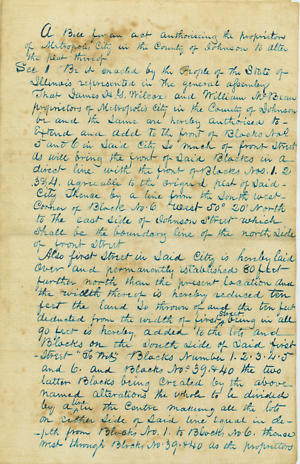 A Bill for an act authorising the proprietors
of Metropolis City in the County of Johnson to alter
the plat thereof
Sec 1 Be it enacted by the People of the State of
Illinois represented in the general assembly
That James H. G. Wilcox and William McBean
proprietors of Metropolis City in the County of Johnson
be and the same are hereby authorised to
extend and add to the front of Blocks No.
5 and 6 in Said City So much of front Street
as will bring the front of Said Blocks in a
direct line with the front of Blocks Nos. 1. 2
3 & 4. agreeable to the original plat of Said
City thence by a line from the South West
Corner of Block No. 6 West 50° 20' North
to the East Side of Johnson Street which
shall be the boundary line of the north Side
of front Street
Also first Street in Said City is hereby laid
over and permanently established 80 feet
further north than the present location and
the width thereof is hereby reduced ten
feet and is thrown and the ten feet
deducted from the width of first being in all
90 feet is hereby added to the lots and
Blocks on the South Side of Said first
Street "To Wit" Blocks Number 1. 2. 3. 4. 5
and 6. and Blocks No. 39. & 40 the two
latter Blocks being created by the above
named alterations the whole to be divided
by a line in the Centre making all the lots
on either Side of Said line Equal in de-
pth from Block No. 1. to Block No. 6. thence
West through Blocks No. 39. & 40 as the proprietors